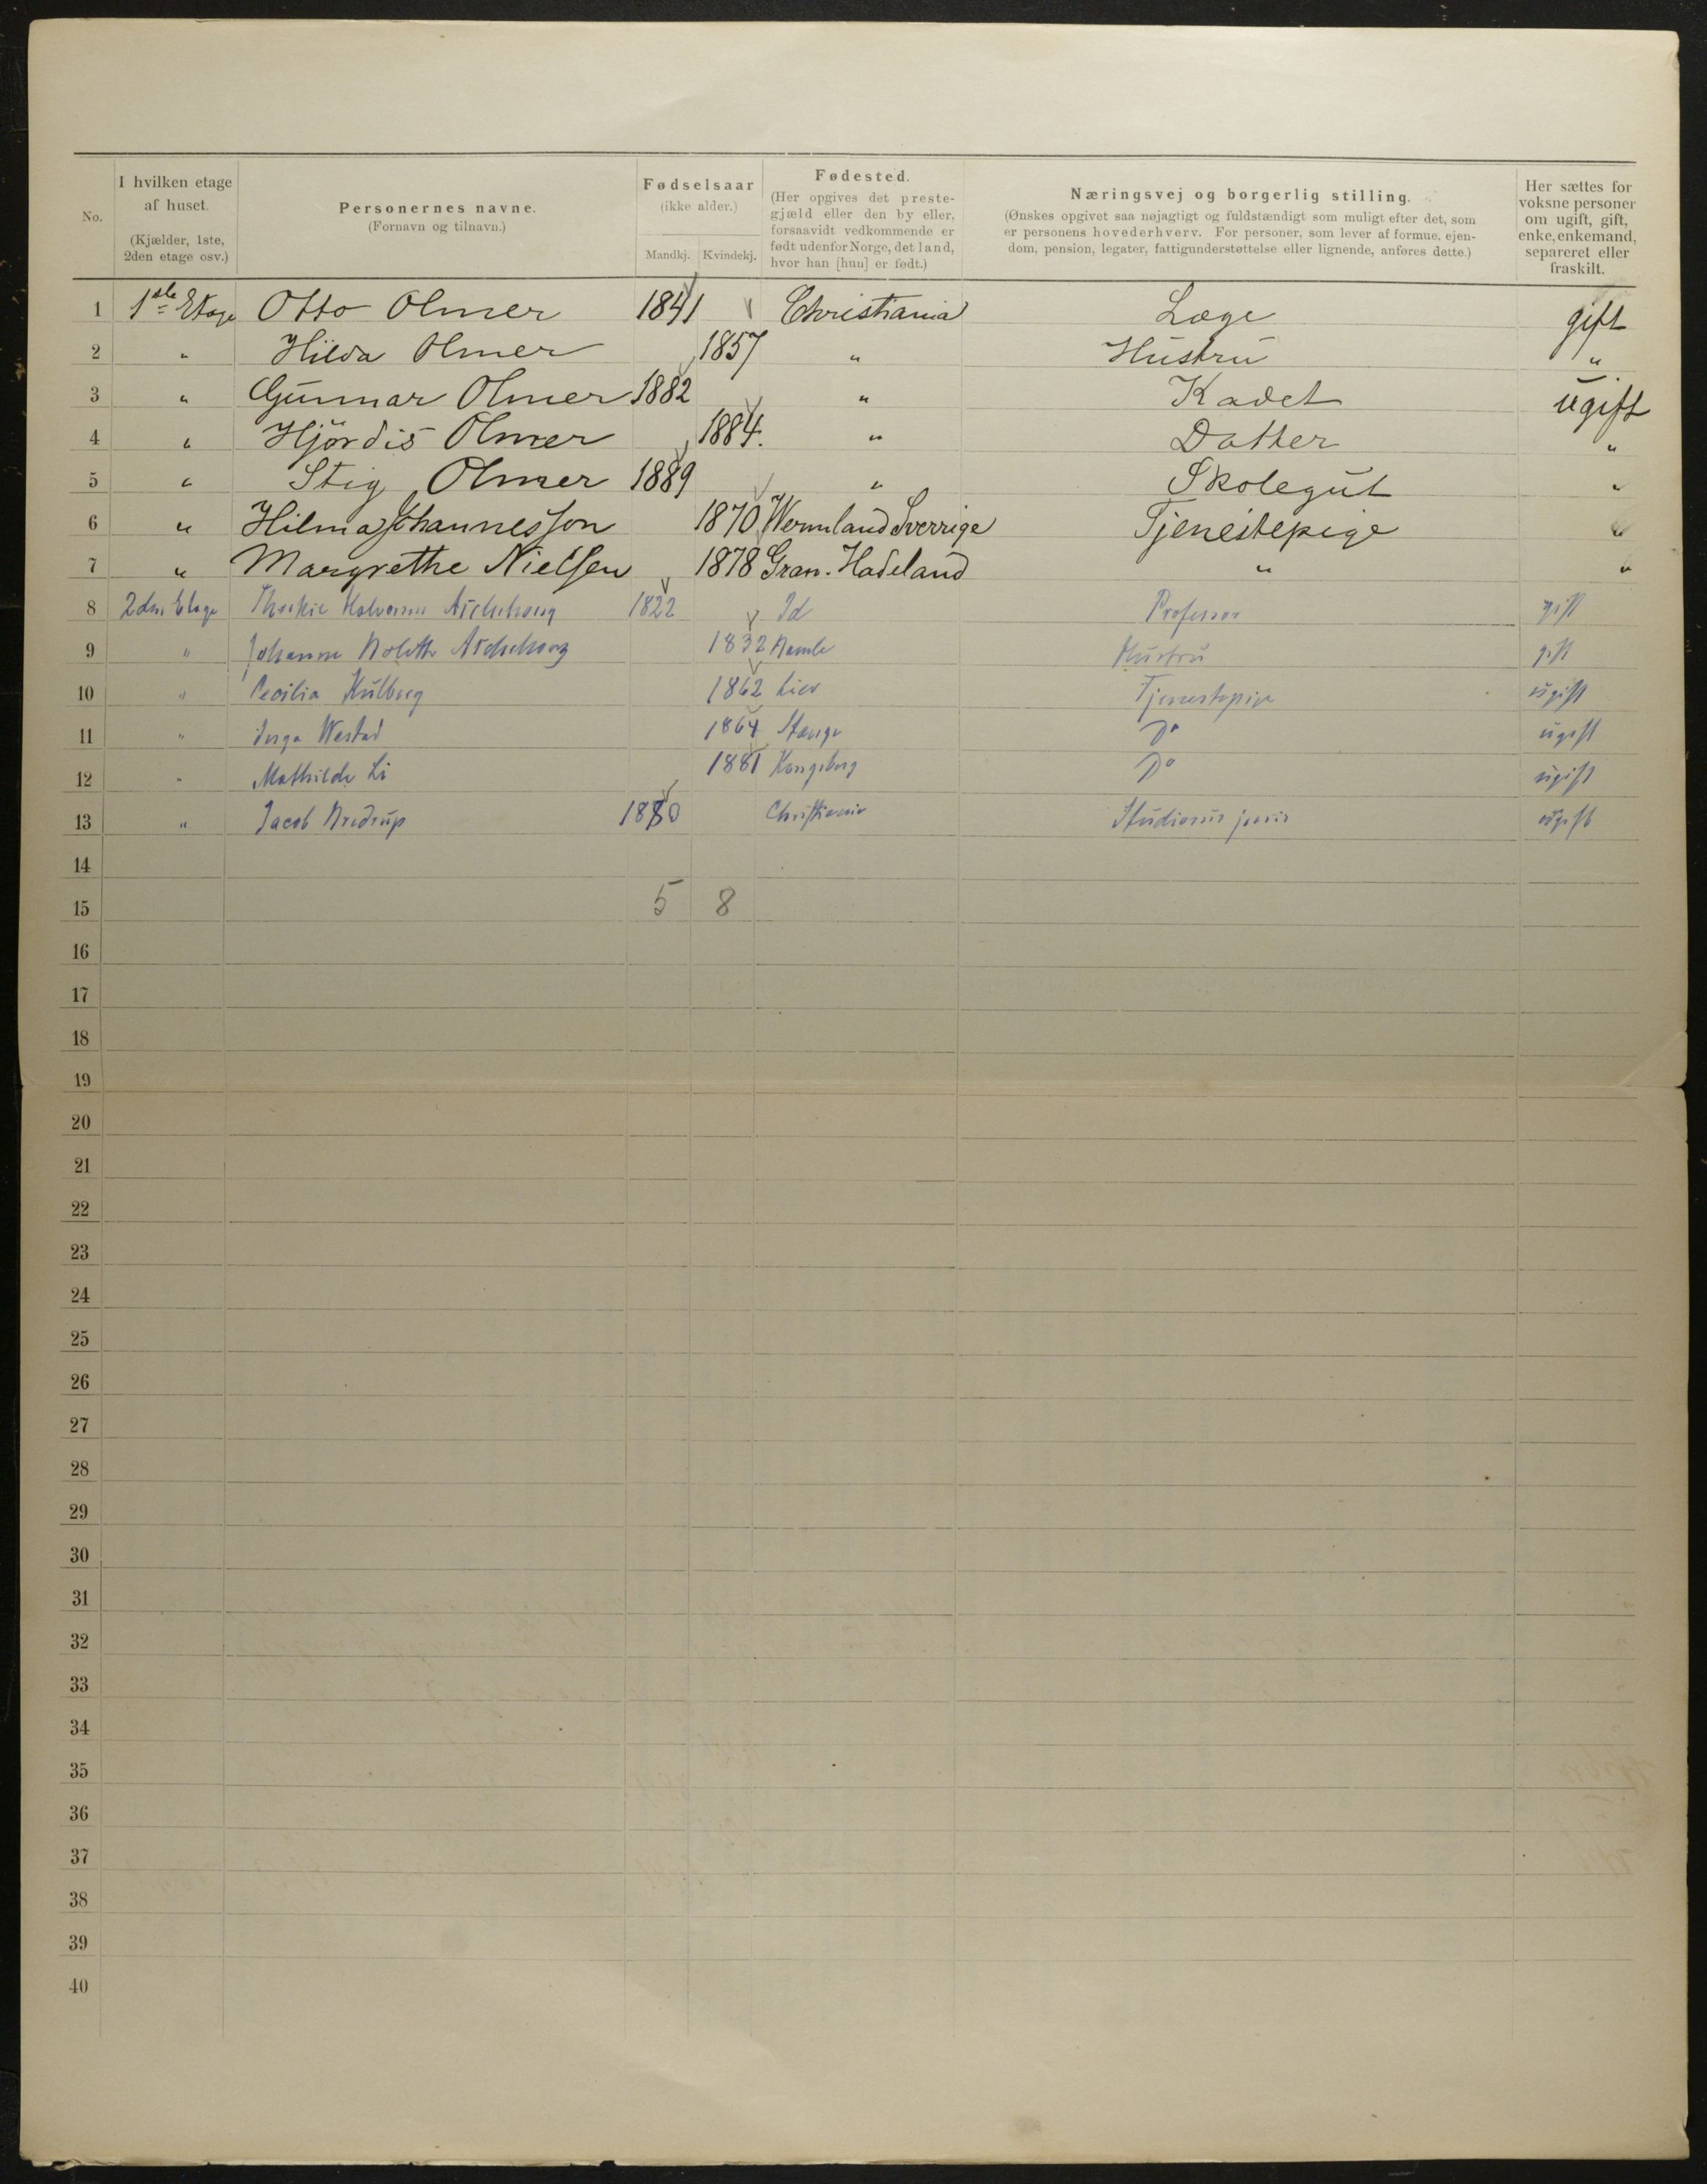 No.
I hvilken etage af huset. (Kjælder, 1ste, 2den etage osv.)
Personernes navne. (Fornavn og tilnavn.)
Fødselsaar (ikke alder.)
Mandkj. Kvindekj.
Fødested. (Her opgives det prestegjæld eller den by eller, forsaavidt vedkommende er født udenfor Norge, det land, hvor han [hun] er født.)
Næringsvej og borgerlig stilling. (Ønskes opgivet saa nøjagtigt og fuldstændigt som muligt efter det, som er personens hovederhverv. For personer, som lever af formue, ejendom, pension, legater, fattigunderstøttelse eller lignende, anføres dette.)
Her sættes for voksne personer om ugift, gift, enke, enkemand, separeret eller fraskilt.
1 1ste Etage Otto Olmer 1841 Christiania Læge gift
2 " Hilda Olmer 1857 " Hustru "
3 " Gunnar Olmer 1882 " Kadet ugift
4 " Hjördis Olmer 1884. " Datter "
5 " Stig Olmer 1889 " Skolegut "
6 " Hilma Johannesson 1870 Wermland Sverrige Tjenestepige "
7 " Margrethe Nielsen 1878 Gran. Hadeland " "
8 2den Etage Aschehoug 1822 Id Professor gift
9 " Johanne Aschehoug 1832 Hustru gift
10 " Cecilia Kulberg 1862 Lier Tjenestepige ugift
11 " Inga Westad 1864 Stange Do ugift
12 " Mathilde Li 1881 Kongsberg Do ugift
13 " Jacob 1880 Christiania Studiosus juris ugift
14
15 5 8
16
17
18
19
20
21
22
23
24
25
26
27
28
29
30
31
32
33
34
35
36
37
38
39
40